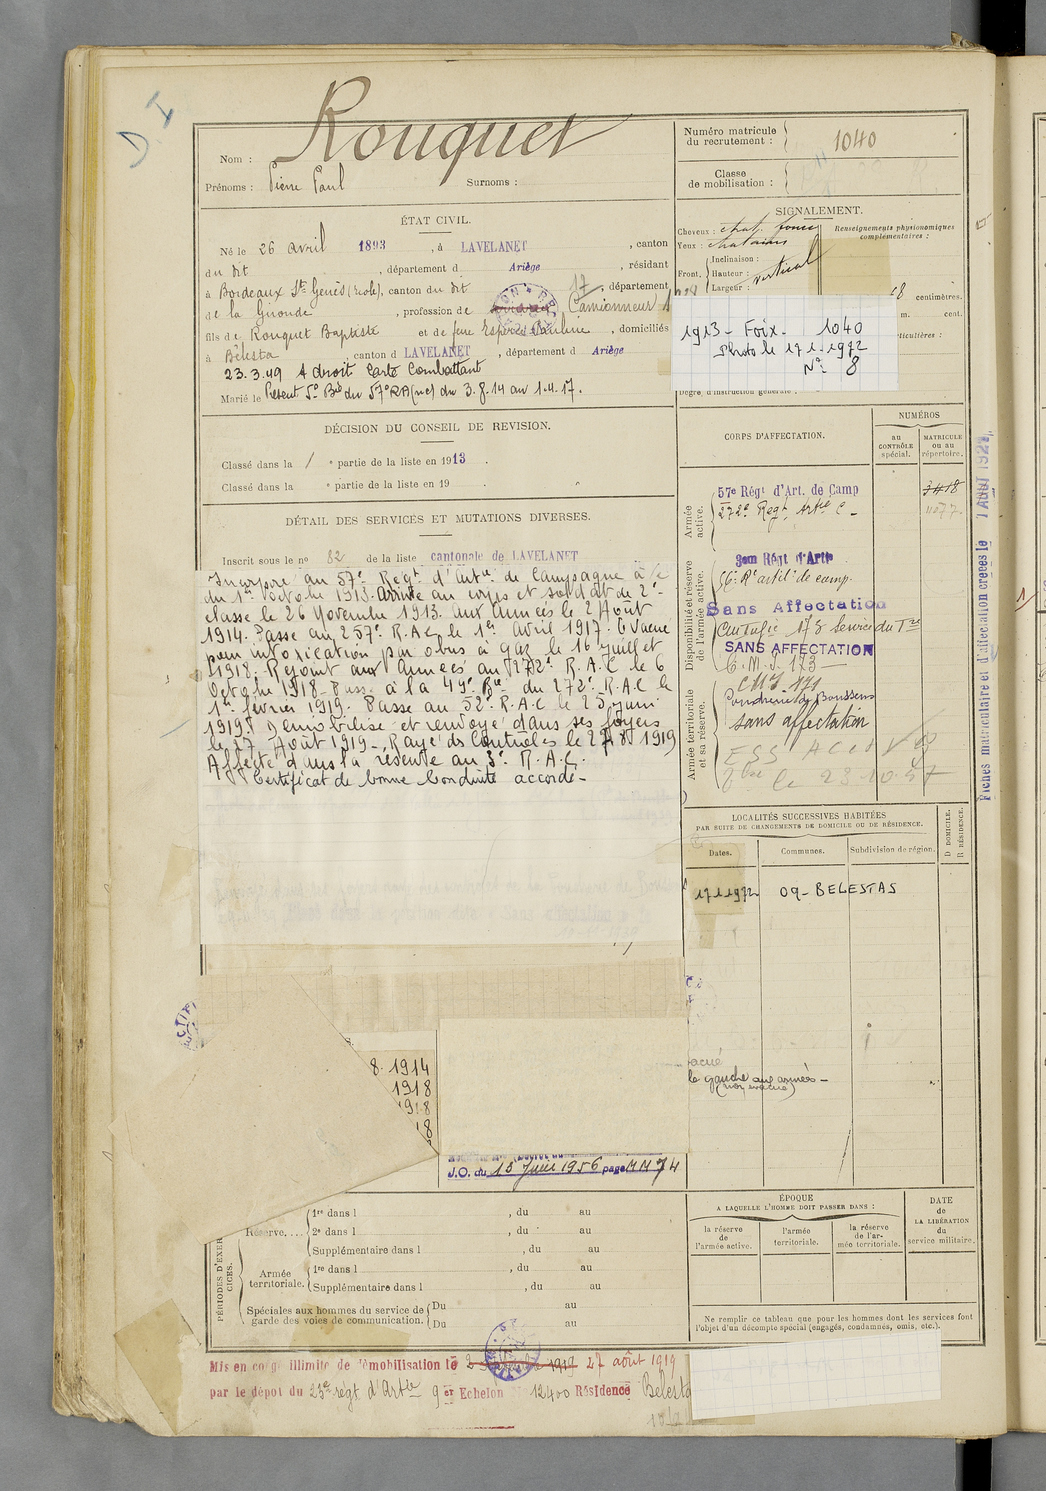 D I
Nom : Rouquet
Prénoms : Pierre Paul Surnoms :
Numéro matricule du recrutement : 1040
Classe de mobilisation :
ÉTAT CIVIL.
Né le 26 avril 1893 , à LAVELANET , canton
du dit , département d Ariège , résidant
à Bordeaux St Genès (école), canton du dit , département
de la Gironde , profession de Camionneur
fils de Rouquet Baptiste et de feue Espérie Pauline , domiciliés
à Bélesta , canton d LAVELANET , département d Ariège
23.3.49 A droit Carte Combattant
Marié le Présent 5e Bie du 57e RA (nc) du 3.8.14 au 1.4.17.
SIGNALEMENT.
Cheveux : chat. foncé
Yeux : chatains
Front. Inclinaison :
Hauteur : vertical
Largeur :
Renseignements physionomiques complémentaires :
68 centimètres.
m. cent.
ticulières :
1913 - Foix - 1040
Photo le 17.1.1972
N° 8
Degré d'instruction générale :
DÉCISION DU CONSEIL DE REVISION.
Classé dans la 1 e partie de la liste en 1913 .
Classé dans la e partie de la liste en 19 .
DÉTAIL DES SERVICES ET MUTATIONS DIVERSES.
Inscrit sous le no 82 de la liste cantonale de LAVELANET
Incorporé au 57e Régt d'Artie de Campagne à/c
du 1er octobre 1913. Arrivé au corps et soldat de 2e
classe le 26 Novembre 1913. Aux armées le 2 Août
1914. Passé au 257e R.A.C le 1er Avril 1917. Evacué
pour intoxication par obus à gaz le 16 juillet
1918. Rejoint aux Armées au 272e R.A.C le 6
Octobre 1918. Passé à la 49e Bie du 272e R.A.C le
1er février 1919. Passé au 52e R.A.C le 25 juin
1919. Démobilisé et renvoyé dans ses foyers
le 27 Août 1919 - Rayé des Contrôles le 27.8.1919
Affecté dans la réserve au 3e R.A.C.
Certificat de bonne Conduite accordé -
CORPS D'AFFECTATION.
NUMÉROS
AU CONTRÔLE spécial.
MATRICULE ou au répertoire.
Armée active.
57e Régt d'Art. de Camp 3418
272e Regt Artie C - 11077
Disponibilité et réserve de l'armée active.
3em Régt d'Artie
56e Rt artil. de camp.
Sans Affectation
Centufié 173 Service du Tre
SANS AFFECTATION
C. M. J. 173
CMJ. 171
Armée territoriale et sa réserve.
Poudrerie de Boussens
sans affectation
le 23.10.57
Fiches matriculaire et d'affectation créées le 1 AOUT 1927
LOCALITÉS SUCCESSIVES HABITÉES
PAR SUITE DE CHANGEMENTS DE DOMICILE OU DE RÉSIDENCE.
Dates. Communes. Subdivision de région. D DOMICILE. R RÉSIDENCE.
17.1.1972 09- BELESTAS
8. 1914
1918
1918
18
acué
le gauche aux armées -
(non évacué)
J.O. du 15 Juin 1956 page
PÉRIODES D'EXERCICES.
Réserve....
1re dans l , du au
2e dans l , du au
Supplémentaire dans l , du au
Armée territoriale.
1re dans l , du au
Supplémentaire dans l , du au
Spéciales aux hommes du service de garde des voies de communication.
Du au
Du au
ÉPOQUE
A LAQUELLE L'HOMME DOIT PASSER DANS :
la réserve de l'armée active.
l'armée territoriale.
la réserve de l'armée territoriale.
DATE de LA LIBÉRATION du service militaire.
Ne remplir ce tableau que pour les hommes dont les services font l'objet d'un décompte spécial (engagés, condamnés, omis, etc.).
Mis en congé illimité de démobilisation le 27 août 1919
par le dépôt du 23e régt d'Artie 9er Echelon 12400 Résidence Bélesta